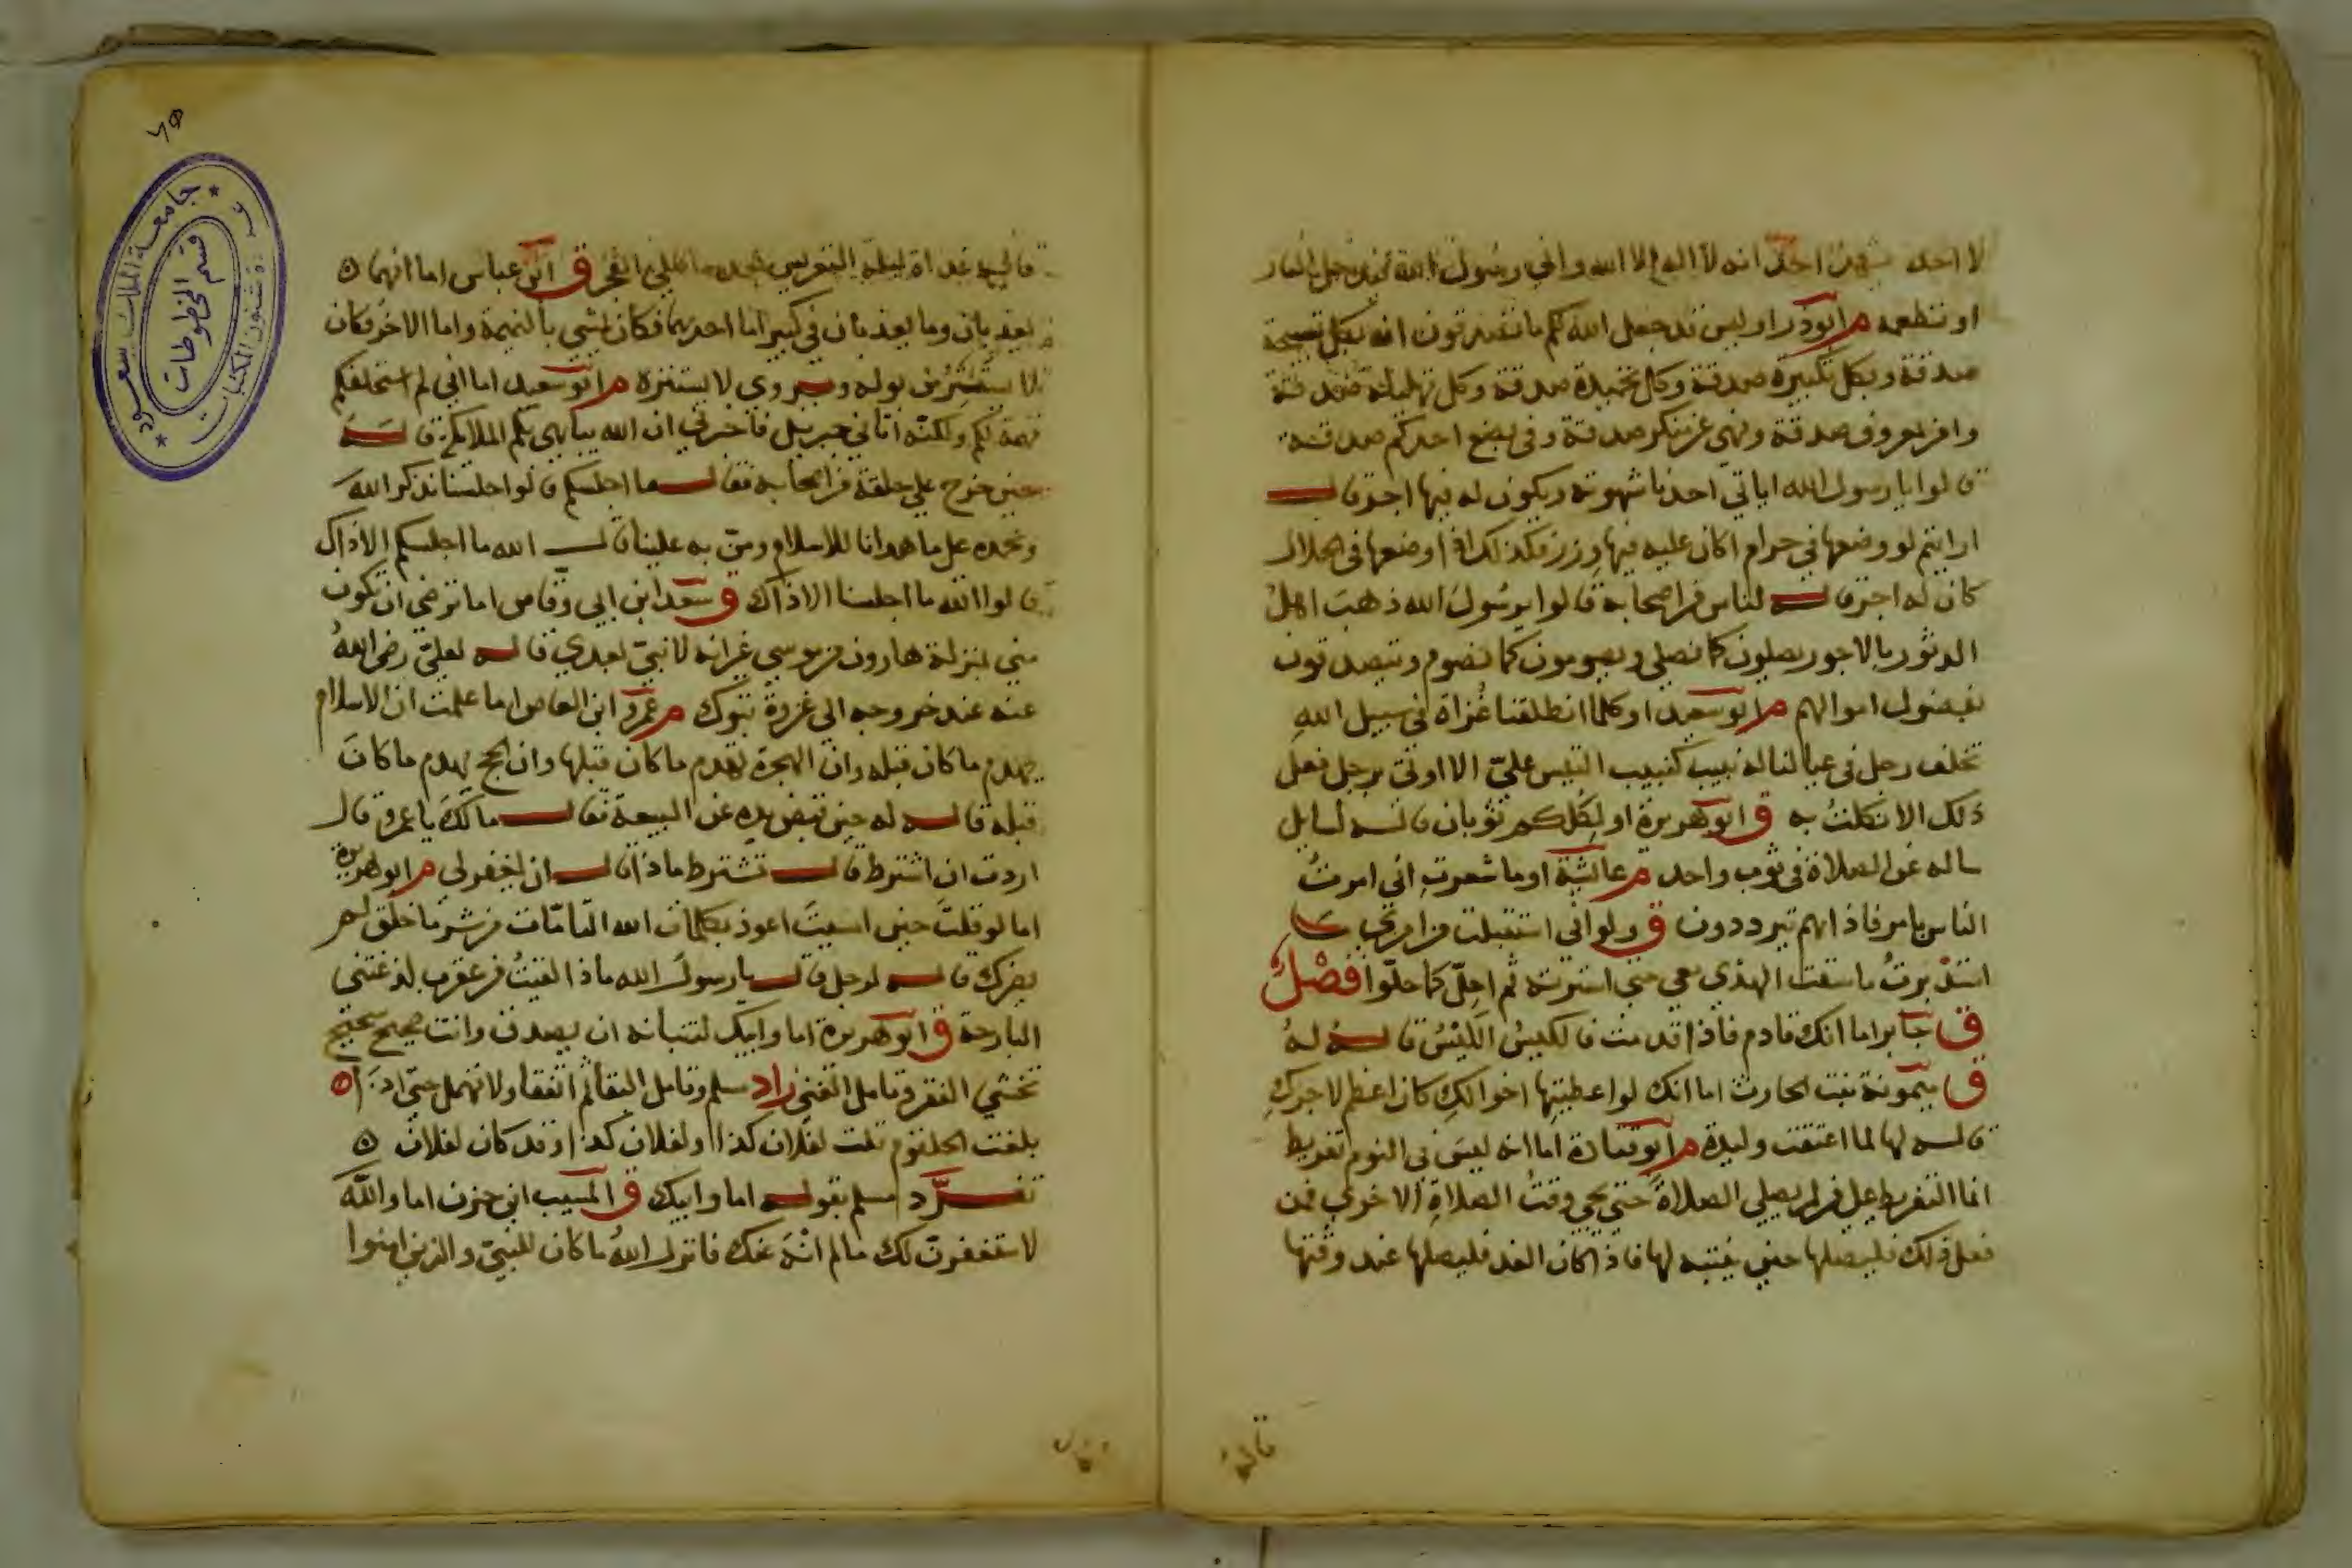 لا احد يشهد احد انه لا اله الا الله واني رسول الله فيدخل النار
او تطعمه م ابو ذر او ليس قد جعل الله لكم ما تصدقون انه بكل تسبيحة
صدقة وبكل تكبيرة صدقة وكل تحميدة صدقة وكل تهليلة صدقة
وامر بمعروف صدقة ونهي عن منكر صدقة وفي بضع احدكم صدقة
قالوا يا رسول الله اياتي احدنا شهوته ويكون له فيها اجر قال
ارايتم لو وضعها في حرام اكان عليه فيها وزر فكذلك اذا وضعها في الحلال
كان له اجر قاله لناس من اصحابه قالوا يرسول الله ذهب اهل
الدثور بالاجور يصلون كما نصلي ويصومون كما نصوم ويتصدقون
بفضول اموالهم م ابو سعيد او كلما انطلقنا غزاة في سبيل الله
تخلف رجل في عيالنا له نبيب كنبيب التيس علي ان لا اوتى برجل فعل
ذلك الا نكلت به ق ابو هريرة او لكلكم ثوبان قاله لسايل
ساله عن الصلاة في ثوب واحد م عائشة او ما شعرت اني امرت
الناس بامر فاذا هم يترددون ق ولو اني استقبلت من امري ما
استدبرت ما سقت الهدي معي حتي اشتريته ثم احل كما حلوا فصل
ق جابر اما انك قادم فاذا قدمت فالكيس الكيس قاله له
ق ميمونة بنت الحارث اما انك لو اعطيتها اخوالك كان اعظم لاجرك
قاله لها لما اعتقت وليدة م ابو قتادة اما انه ليس في النوم تفريط
انما التفريط علي من لم يصلي الصلاة حتي يجي وقت الصلاة الاخري فمن
فعل ذلك فليصلها حين ينتبه لها فاذا كان الغد فليصلها عند وقتها
قاله
٦٥
جامعة الملك سعود
قسم المخطوطات
شئون المكتبات
قاله غداة ليلة التعريس الفجر ق ابن عباس اما انهما
يعذبان وما يعذبان في كبير اما احدهما فكان يمشي بالنميمة واما الاخر فكان
لا يستتر من بوله ويروى لا يستنزه م ابو سعيد اما اني لم استحلفكم
تهمة لكم ولكنه اتاني جبريل فاخبرني ان الله يباهي بكم الملائكة قاله
حين خرج علي حلقة من اصحابه فقال ما اجلسكم قالوا جلسنا نذكر الله
ونحمده على ما هدانا للاسلام ومن به علينا قال الله ما اجلسكم الا ذاك
قالوا الله ما اجلسنا الا ذاك ق سعد ابن ابي وقاص اما ترضي ان تكون
مني بمنزلة هارون من موسي غير انه لا نبي بعدي قاله لعلي رضي الله
عنه عند خروجه الى غزوة تبوك م عمرو ابن العاص اما علمت ان الاسلام
يهدم ما كان قبله وان الهجرة تهدم ما كان قبلها وان الحج يهدم ما كان
قبله قاله له حين قبض يده عن البيعة فقال مالك يا عمرو قال
اردت ان اشترط قال تشترط ماذا قال ان يغفر لي م ابو هريرة
اما لو قلت حين امسيت اعوذ بكلمات الله التامات من شر ما خلق لم
يضرك قاله لرجل قال يا رسول الله ماذا لقيت من عقرب لدغتني
البارحة ق ابو هريرة اما وابيك لتنبانه ان تصدق وانت صحيح شحيح
تخشي الفقر وتامل الغنى زاد مسلم وتامل البقا ثم اتفقا ولا تمهل حتى اذا
بلغت الحلقوم قلت لفلان كذا ولفلان كذا وقد كان لفلان
تفرد مسلم بقوله اما وابيك ق المسيب ابن حزن اما والله
لاستغفرن لك ما لم انه عنك فانزل الله ما كان للنبي والذين امنوا